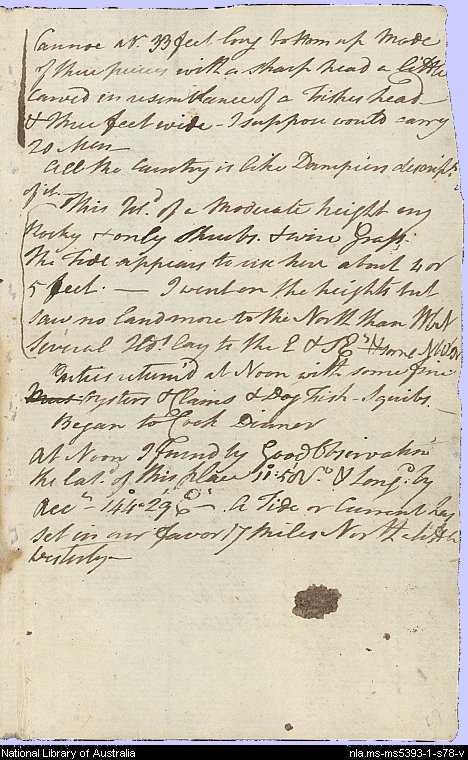 Cannoe abt. 33 feet long bottom up made
of three pieces with a sharp head a little
carved in resemblance of a Fishes head
& three feet wide - I suppose would carry
20 Men
All the Country is like Dampiers descript.
of it - This Isd. of a Moderate height very
Rocky & only Shrubs & wire Grass.
The Tide appears to rise here about 4 or
5 feet. — I went on the heights but
saw no land more to the North than WbN
Several Isds. lay to the E & SEd
Parties return'd at Noon with some fine
Oysters & Clams & Dog Fish - Squibs. -
Began to Cook Dinner
at Noon I found by Good Observation
the Lat. of this place 11:58 & Longd. by
Recn. 144:29 E - A Tide or Current has
set in our favor 17 miles North a little
Westerly -
National Library of Australia
nla.ms-ms5393-1-s78-v